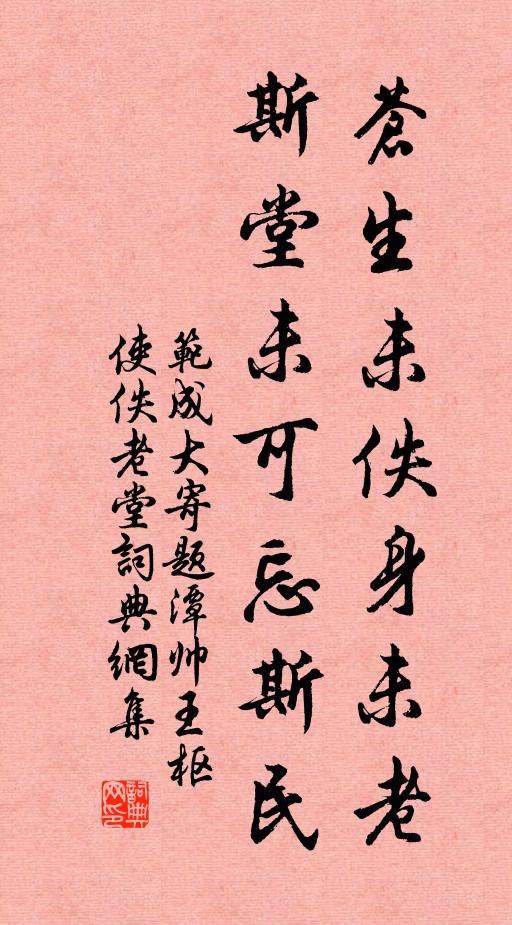 蒼生未佚身未老
斯堂未可忘斯民
範成大寄題潭帅王枢
使佚老堂詞典網集
詞典
网印